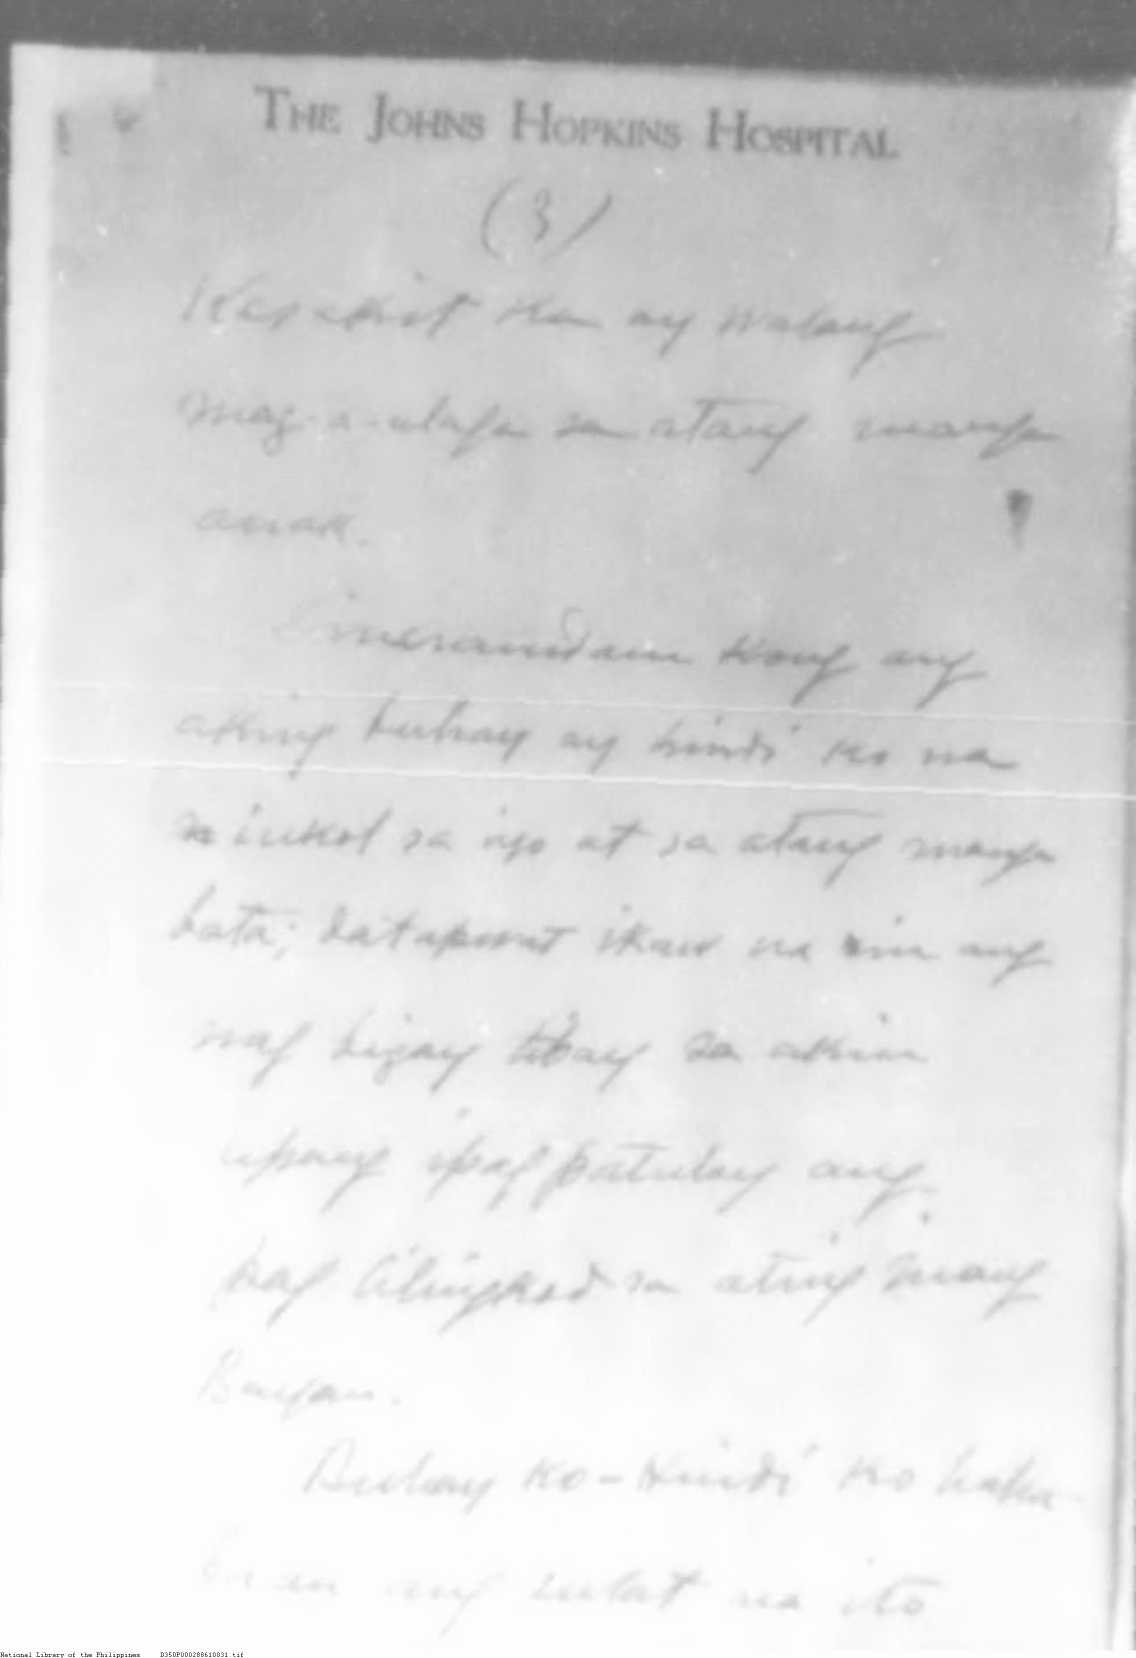 THE JOHNS HOPKINS HOSPITAL
(3)
ka ay walang
mag-a-alaga sa atang manga
anak.
kong ang
aking buhay ay hindi ko na
inukol sa iyo at sa atang manga
bata; datapwat ikaw na rin ang
nag bigay tibay sa akin
upang ipag patuloy ang
pag lilingkod sa ating Inang
Bayan.
Buhay ko - Hindi ko haha-
ang sulat na ito
National Library of the Philippines D350P000288610031.tif